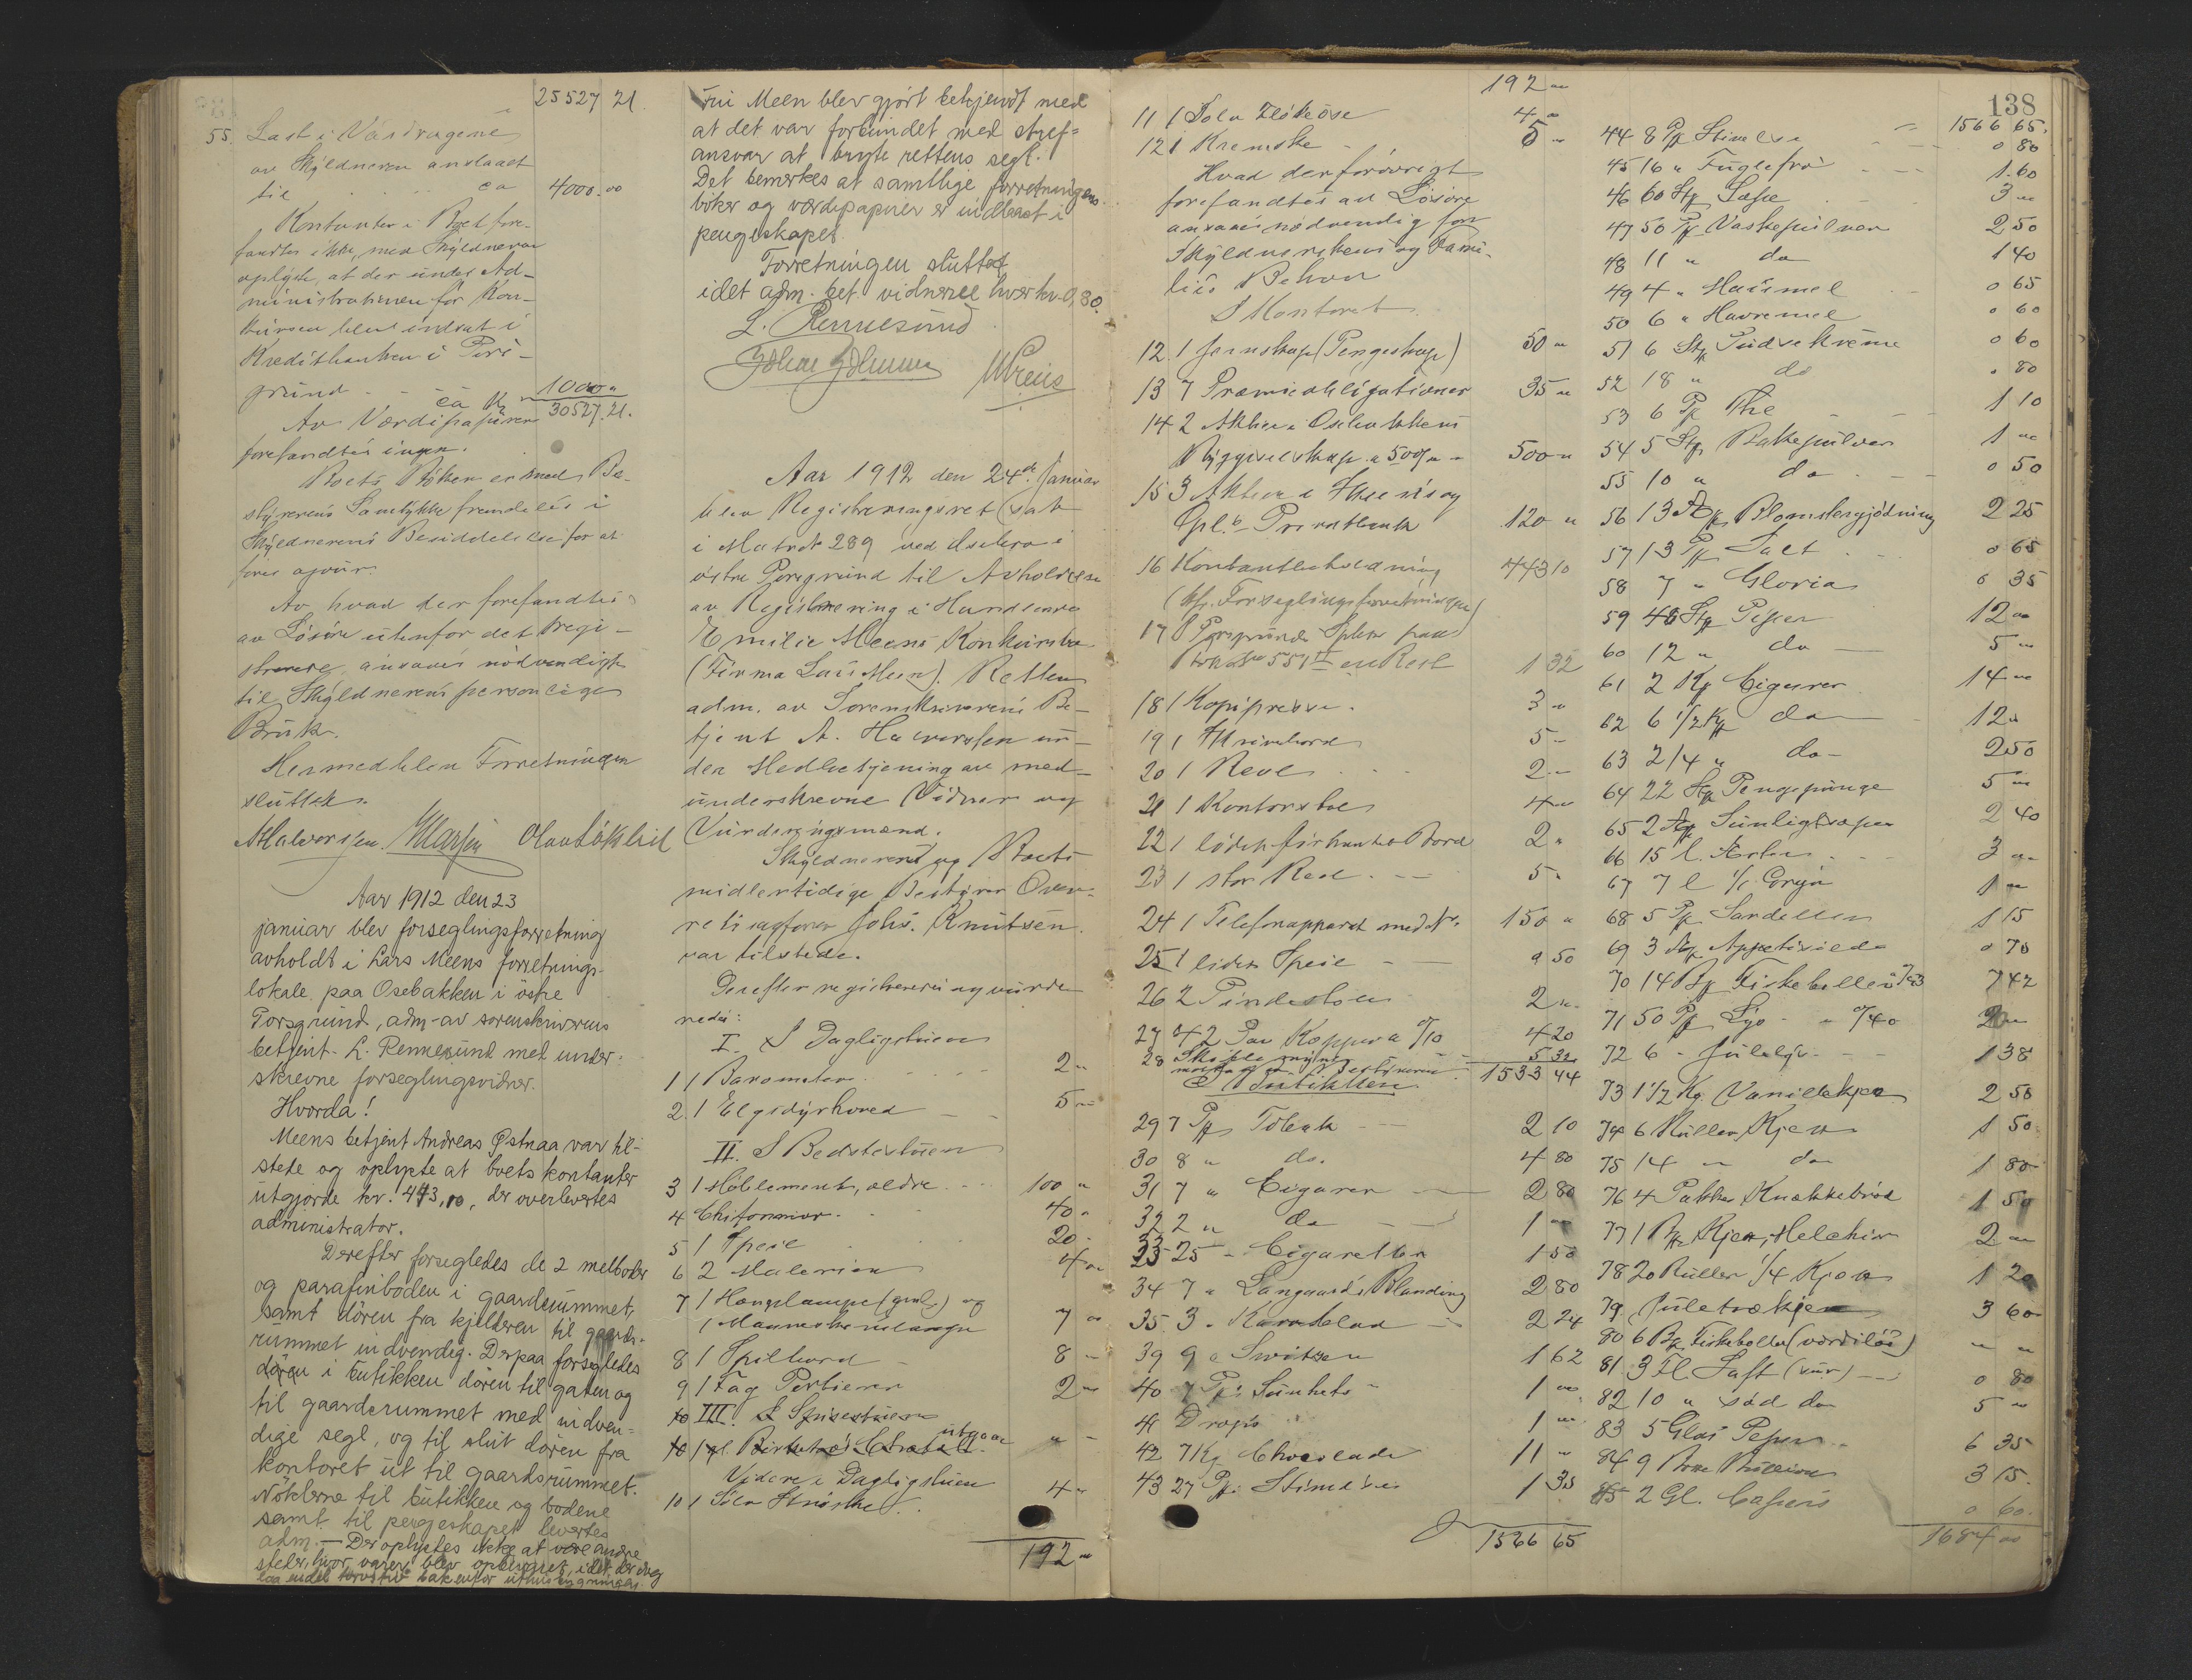 25527 21.
55. Last i Vasdragene
av Skyldneren anslaaet
til ca 4000.00
Kontanter i Boet fore-
fandtes ikke, men Skyldneren
oplyste, at der under Ad-
ministrationen før Kon-
kursen blev indsat i
Kreditbanken i Pors-
grund ca Kr 1000
30527.21.
Av Værdipapirer
forefandtes ingen.
Boets Bøker er med Be-
styrerens Samtykke fremdeles i
Skyldnerens Besiddelse for at
føres ajour.
Av hvad der forefandtes
av Løsøre utenfor det regi-
strerte ansaaes nødvendigt
til Skyldnerens personlige
Bruk.
Hermed blev Forretningen
sluttet.
AHalvorsen. Olav Løklid
Aar 1912 den 23
januar blev forseglingsforretning
avholdt i Lars Meens forretnings-
lokale paa Osebakken i østre
Porsgrund, adm. av sorenskriverens
betjent L. Rennesund med under-
skrevne forseglingsvidner.
Hvorda!
Meens betjent Andreas Østnaa var til-
stede og oplyste at boets kontanter
utgjorde kr. 443,10, der overlevertes
administrator.
Derefter forsegledes de 2 melboder
og parafinboden i gaardsrummet,
samt døren fra kjelderen til gaards-
rummet indvendig. Derpaa forsegledes
døren i butikken døren til gaten og
til gaardsrummet med indven-
dige segl, og til slut døren fra
kontoret ut til gaardsrummet.
Nøklerne til butikken og bodene
samt til pengeskapet levertes
adm. — Der oplystes ikke at være andre
steder, hvor varer blev opbevaret, idet der dog
laa endel bak enfor
Fru Meen blev gjort bekjendt med
at det var forbundet med straf-
ansvar at bryte rettens segl.
Det bemerkes at samtlige forretningens
bøker og værdipapirer er indlaast i
pengeskapet.
Forretningen sluttet
idet adm. bet. vidnerne hver kr. 0,80.
L. Rennesund
Aar 1912 den 24de Januar
blev Registreringsret sat
i Matr. 289 ved Osebro i
østre Porsgrund til Avholdelse
av Registrering i Handlende
Emilie Meens Konkursbo
(Firma Lars Meen). Retten
adm. av Sorenskriverens Be-
tjent A. Halvorsen un-
der Medbetjening av med-
underskrevne Vidner og
Vurderingsmænd.
Skyldneren og Boets
midlertidige Bestyrer Over-
retssagfører Johs. Knutsen
var tilstede.
Derefter registrertes og vurde-
redes:
I. I Dagligstuen
1 1 Barometer 2 "
2 1 Elgsdyrhoved 5 "
II. I Bedstestuen
3 1 Møblement, ældre 100 "
4 Chifonnier 40 "
5 1 Speil 20 "
6 2 Malerier 4 "
7 1 Hængelampe (gml.) og
1 7 "
8 1 Spilbord 8 "
9 1 Fag Portierer 2 "
10 III. I Spisestuen
10 1 gl. utgaar " "
Videre i Dagligstuen
10 1 Sølv 4 "
192 "
138
192 "
11 1 Sølv Fløteøse 4 "
12 1 Kremske 5 "
Hvad der forøvrigt
forefandtes av Løsøre
ansaaes nødvendig for
Skyldnerskens og Fami-
lies Behov
I Kontoret
12. 1 Jernskap (Pengeskap) 50 "
13 7 Præmieobligationer 35 "
14 2 Aktier i Osebakkens
Byggeselskap a 50 500 "
15 3 Aktier i Skiens og
Opl.s Privatbank 120 "
16 Kontantbeholdning 443 10
(kfr. Forseglingsforretningen)
17 1 Porsgrunds
1 32
18 1 Kopipresse 3 "
19 1 Skrivebord 5 "
20 1 Reol 2 "
21 1 Kontorstol 4 "
22 1 lidet firkantet Bord 2 "
23 1 stor Reol 5 "
24 1 Telefonapparat med Nr. 150 "
25 1 liden Speil 0 50
26 2 Pindestoler 2 "
27 42 Par Kopper a 0/10 4 20
28 5 32
1533 44
I Butikken
29 7 Pk Tobak 2 10
30 8 " do. 4 80
31 7 " Cigarer 2 80
32 2 " do 1 "
33 25 - Cigaretter 1 50
34 7 " Langaard's Blanding 2 80
35 3 - Karveblad 2 24
39 9 a 1 62
40 7 Pk 1 "
41 Drops 1 "
42 7 Kg Chocolade 11 "
43 27 Pk. 1 35
1566 65
1566 65.
44 8 Pk Stivelse 0 80
45 16 " Fuglefrø 1.60
46 60 Stk Sæpe 3 "
47 50 Pk Vaskepulver 2 50
48 11 " do 1 40
49 4 " Maismel 0 65
50 6 " Havremel 0 60
51 6 Stk Pudsekreme 0 60
52 18 " do . 80
53 6 Pk The 1 10
54 5 Stk Bakepulver 1 "
55 10 " do 0 50
56 13 Pk Blomstergjødning 2 25
57 13 Pk Salt 0 65
58 7 " Gloria 0 35
59 48 Stk Piper 12 "
60 12 " do 5 "
61 2 Kg Cigarer 14 "
62 6 1/2 Kg do 12 "
63 2/4 " do 2 50
64 22 Stk Pengepunge 5 "
65 2 Stk Sunligtsæpe 2 40
66 15 l. Erter 3 "
67 7 l 1/1 Gryn 1 "
68 5 Pk Sardeller 1 15
69 3 Appetitsild 0 75
70 14 Bk Fiskeboller 7 42
71 50 Pk Lys " 0/40 20 "
72 6 - Julelys 1 38
73 1 1/2 Kg Vanillekjæx 2 50
74 6 Ruller Kjæx 1 50
75 14 " do 1 80
76 4 Pakker Knækkebrød 1 50
77 1 Bk Kjæx, 2 "
78 20 Ruller 1/4 Kjæx 1 20
79 Juletrækjæx 3 60
80 6 Bk Fiskeboller (værdiløs) " "
81 3 Fl Saft (sur) 0 80
82 10 " sød do 5 "
83 5 Glas Peper 6 35
84 9 Bouillon 3 15.
85 2 Gl. Capers 0 60.
1684 00